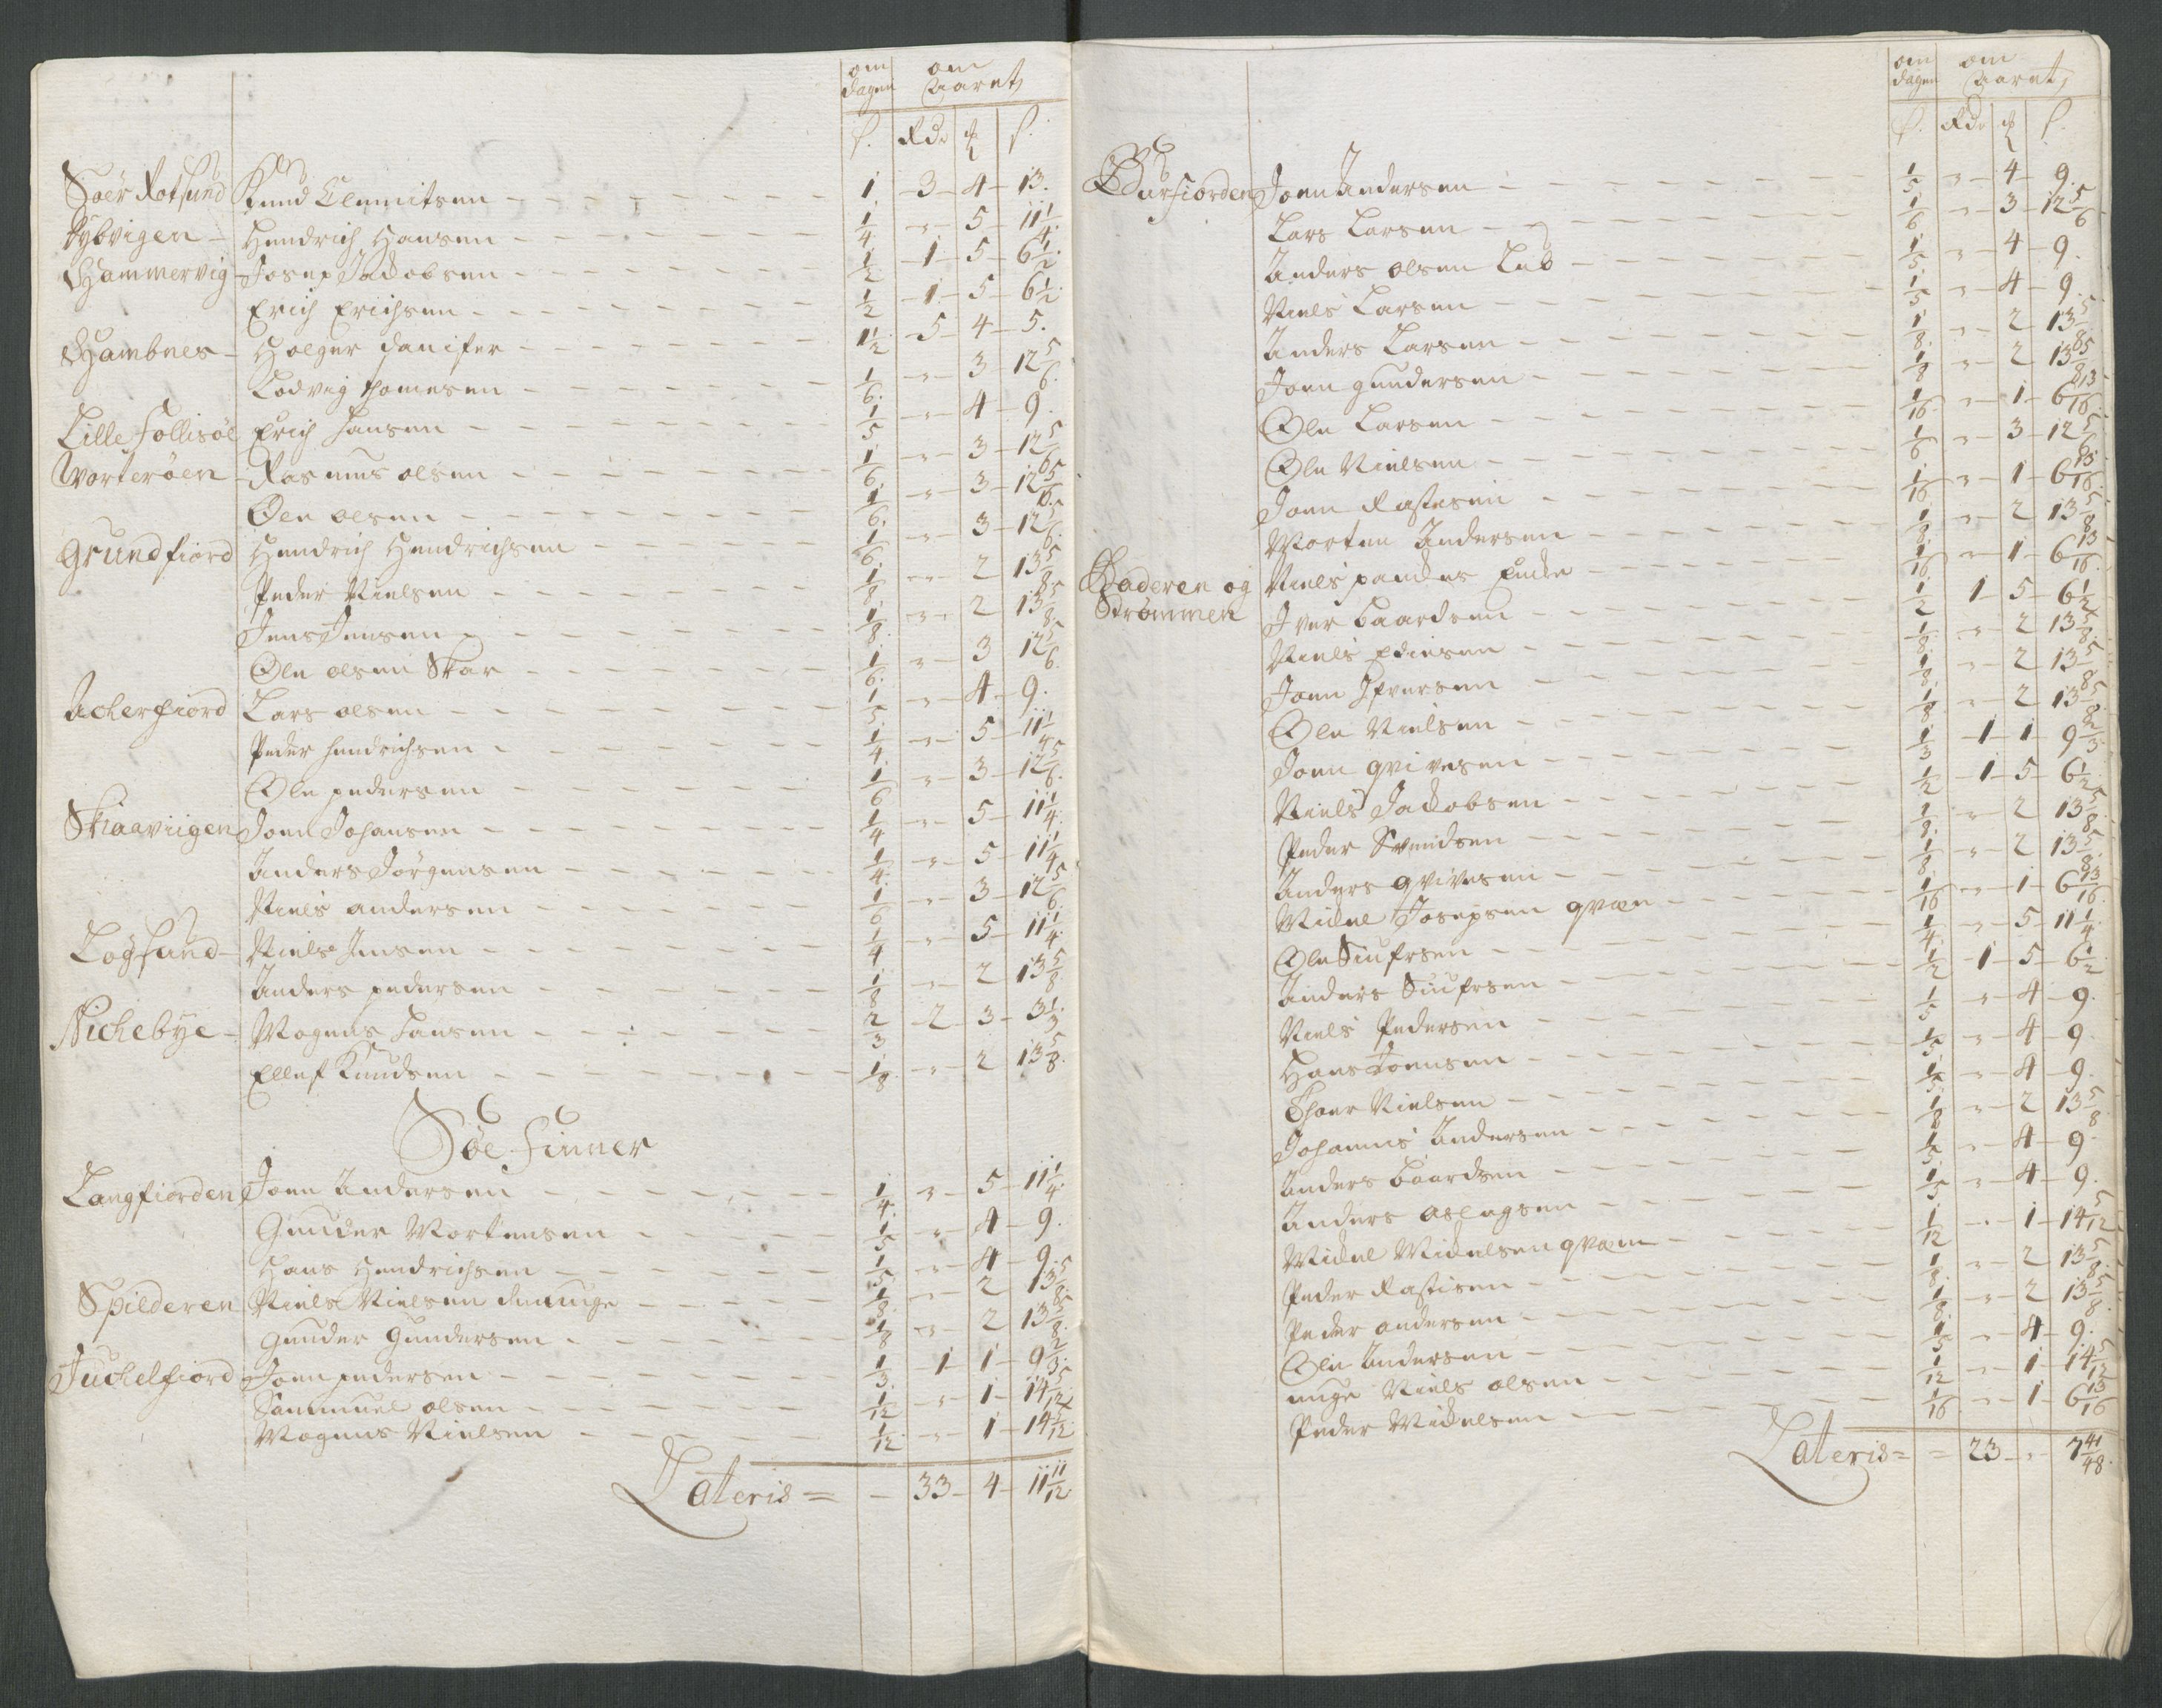 om dagen om Aaret
s. Rdr ʒ s.
Soer Rotsund Knud Clemmitsen 1 3 4 13.
Dybvigen Hendrich Hansen 1/4 " 5 11 1/4
Hammervig Josep Jackobsen 1/2 1 5 6 1/2
Erich Erichsen 1/2 1 5 6 1/2
Hambnes Holger Danifer 1 1/2 5 4 5.
Lodvig Thomesen 1/6 " 3 12 5/6
Lille Follisöe Erich Hansen 1/5 " 4 9.
Worterøen Rasmus olsen 1/6 " 3 12 5/6
Ole olsen 1/6 " 3 12 5/6
Grundfiord Hendrich Hendrichsen 1/6 " 3 12 5/6
Peder Nielsen 1/8 " 2 13 5/8
Jens Jensen 1/8 " 2 13 5/8
Ole olsen Skar 1/6 " 3 12 5/6
Acherfiord Lars olsen 1/5 " 4 9.
Peder Hendrichsen 1/4 " 5 11 1/4
Ole pedersen 1/6 " 3 12 5/6
Skaaviigen Joen Johansen 1/4 " 5 11 1/4
Anders Jörgensen 1/4 " 5 11 1/4
Niels andersen 1/6 " 3 12 5/6
Logsund Niels Jensen 1/4 " 5 11 1/4
Anders pedersen 1/8 " 2 13 5/8
Nichebye Mogens Hansen 2/3 2 3 3 1/3
Ellef Knudsen 1/8 " 2 13 5/8
Söe Finner
Langfiorden Joen Andersen 1/4 " 5 11 1/4
Gunder Mortensen 1/5 " 4 9.
Hans Hendrichsen 1/5 " 4 9.
Spilderen Niels Nielsen den unge 1/8 " 2 13 5/8
Gunder Gundersen 1/8 " 2 13 5/8
Juchelfiord Joen pedersen 1/3 1 1 9 2/3
Sammuel olsen 1/12 " 1 14 5/12
Mogens Nielsen 1/12 " 1 14 5/12
Lateris = 33 4 11 11/12
om dagen om Aaret
s. Rdr ʒ s.
Burfiorden Joen Andersen 1/5 " 4 9.
Lars Larsen 1/6 " 3 12 5/6
Anders olsen Lab 1/5 " 4 9.
Niels Larsen 1/5 " 4 9.
Anders Larsen 1/8 " 2 13 5/8
Joen gundersen 1/8 " 2 13 5/8
Ole Larsen 1/16 " 1 6 13/16
Ole Nielsen 1/6 " 3 12 5/6
Joen Rastesen 1/16 " 1 6 13/16
Morten Andersen 1/8 " 2 13 5/8
Baderen og Niels pandes Encke 1/16 " 1 6 13/16
Strømmen Iver baardsen 1/2 1 5 6 1/2
Niels Edissen 1/8 " 2 13 5/8
Joen Ifversen 1/8 " 2 13 5/8
Ole Nielsen 1/8 " 2 13 5/8
Joen qvivesen 1/3 1 1 9 2/3
Niels Jackobsen 1/2 1 5 6 1/2
Peder Svendsen 1/8 " 2 13 5/8
Anders qvivesen 1/8 " 2 13 5/8
Mickel Josepsen qvæn 1/16 " 1 6 13/16
Ole Siufrsen 1/4 " 5 11 1/4
Anders Siufrsen 1/2 1 5 6 1/2
Niels Pedersen 1/5 " 4 9.
Hans Joensen 1/5 " 4 9
Thoer Nielsen 1/5 " 4 9.
Johannis Andersen 1/8 " 2 13 5/8
Anders baardsen 1/5 " 4 9
Anders aslagsen 1/5 " 4 9.
Mickel Mickelsen qvæn 1/12 " 1 14 5/12
Peder Rastisen 1/8 " 2 13 5/8
Peder andersen 1/8 " 2 13 5/8
Ole Andersen 1/5 " 4 9.
unge Niels olsen 1/12 " 1 14 5/12
Peder Mickelsen 1/16 " 1 6 13/16
Lateris = = 23 " 7 41/48